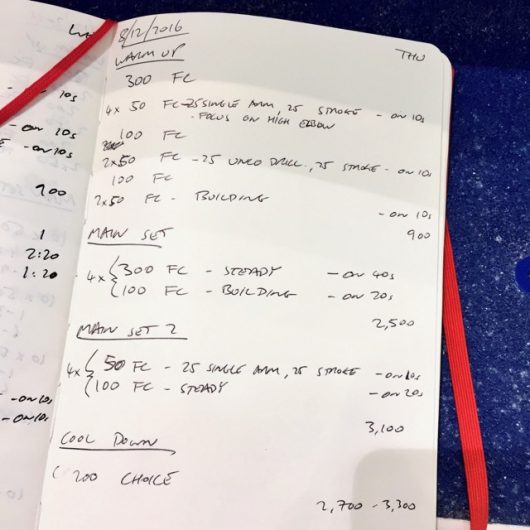 - 10s
- on 10s
- on 10s
900
1
2:20
1:20
- on 10s
- on 10s
8/12/2016
THU
WARM UP
300 FC
4x 50 FC - 25 SINGLE ARM, 25 STROKE - ON 10s
- FOCUS ON HIGH ELBOW
100 FC
2x50 FC - 25 UNCO DRILL, 25 STROKE - ON 10s
100 FC
2x50 FC - BUILDING
- ON 10s
MAIN SET
900
4x { 300 FC - STEADY - ON 40s
{ 100 FC - BUILDING - ON 20s
2,500
MAIN SET 2
4x { 50 FC - 25 SINGLE ARM, 25 STROKE - ON 10s
{ 100 FC - STEADY - ON 20s
3,100
COOL DOWN
200 CHOICE
2,700 - 3,300